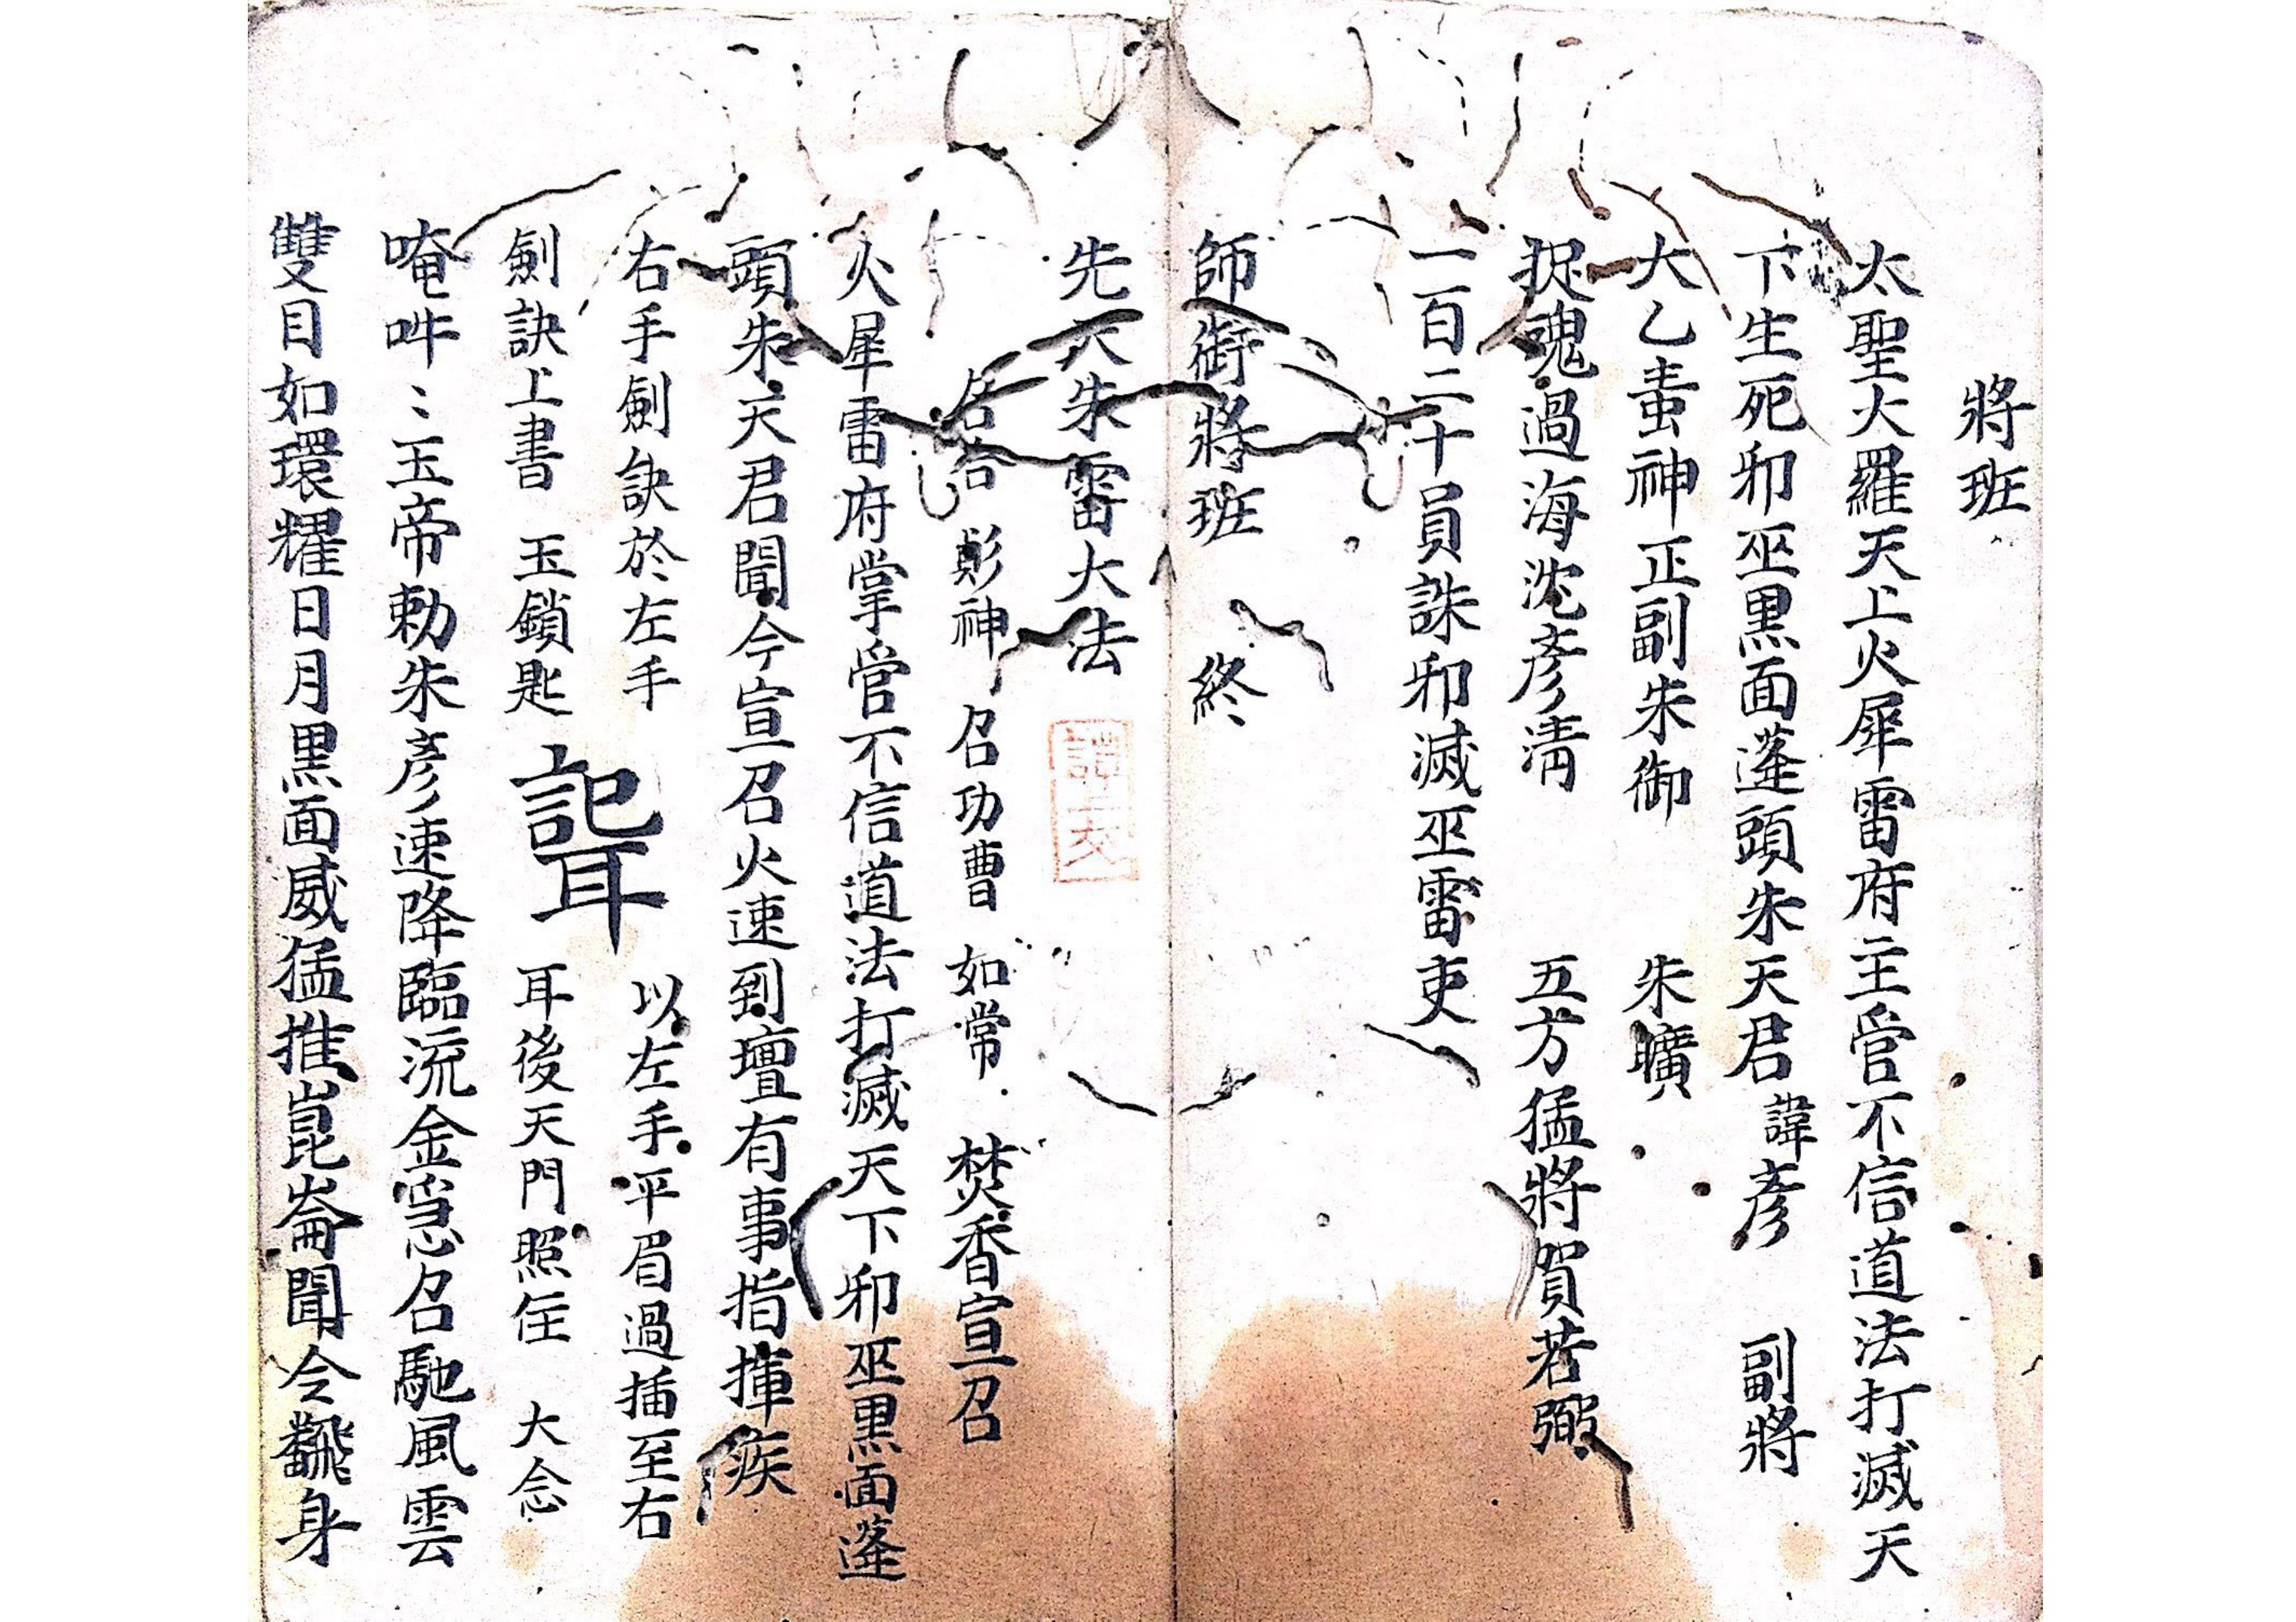 將班
太聖大羅天上火犀雷府主管不信道法打滅天
下生死邪巫黑面蓬頭朱天君諱彥 副將
大乙䖝神正副朱御 朱曠
捉魂過海沈彥清 五方猛將賀若弼
一百二十員誅邪滅巫雷吏
師御將班 終
先天朱雷大法
啓合 彭神 召功曹 如常 焚香宣召
火犀雷府掌管不信道法打滅天下邪巫黑面蓬
頭朱天君聞今宣召火速到壇有事指揮疾
右手劍訣於左手 以左手平眉過插至右
劍訣上書 玉鎖匙 耳後天門照住 大念
唵吽〻玉帝勅朱彥速降臨流金急召馳風雲
雙目如環耀日月黑面威猛推崑崙聞令飜身